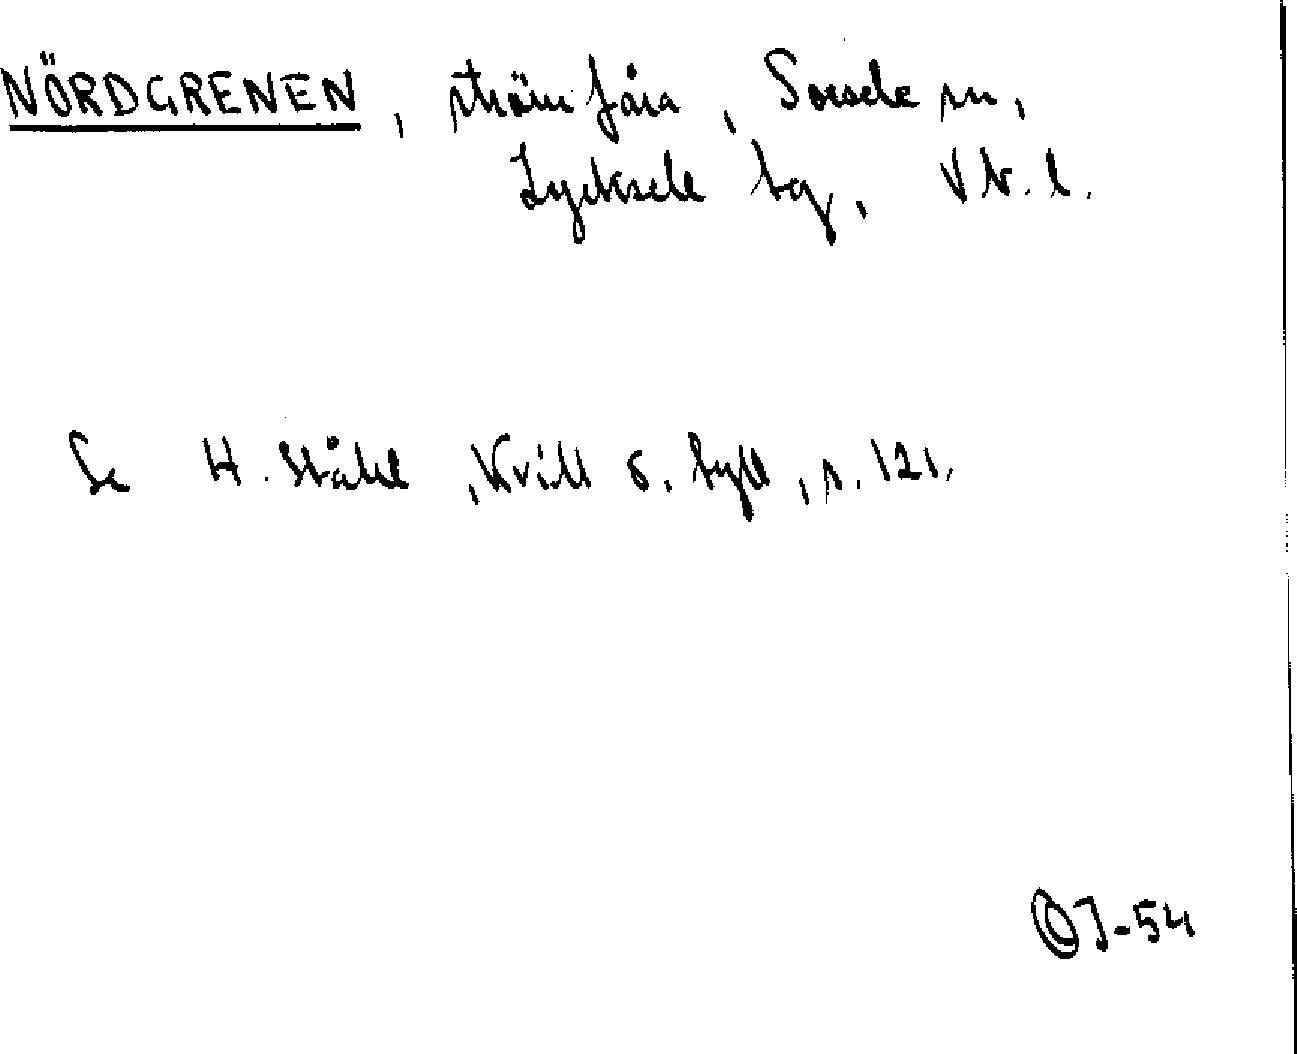 NÖRDGRENEN, strömfåra, Sorsele sn,
Lycksele tg, Vb. l.
Se H. Ståhl, Kvill o. tyll, s. 121.
OJ-54